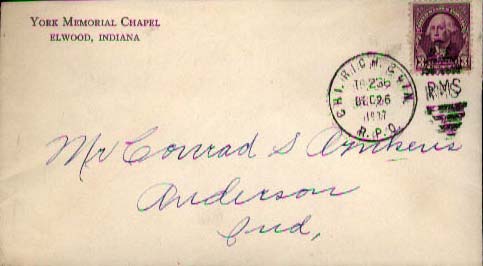 York Memorial Chapel
ELWOOD, INDIANA
CHI. RICH. & CIN.
TR 236
DEC 26
R.P.O.
RMS
3 3
Mr Conrad S
Anderson
Ind,